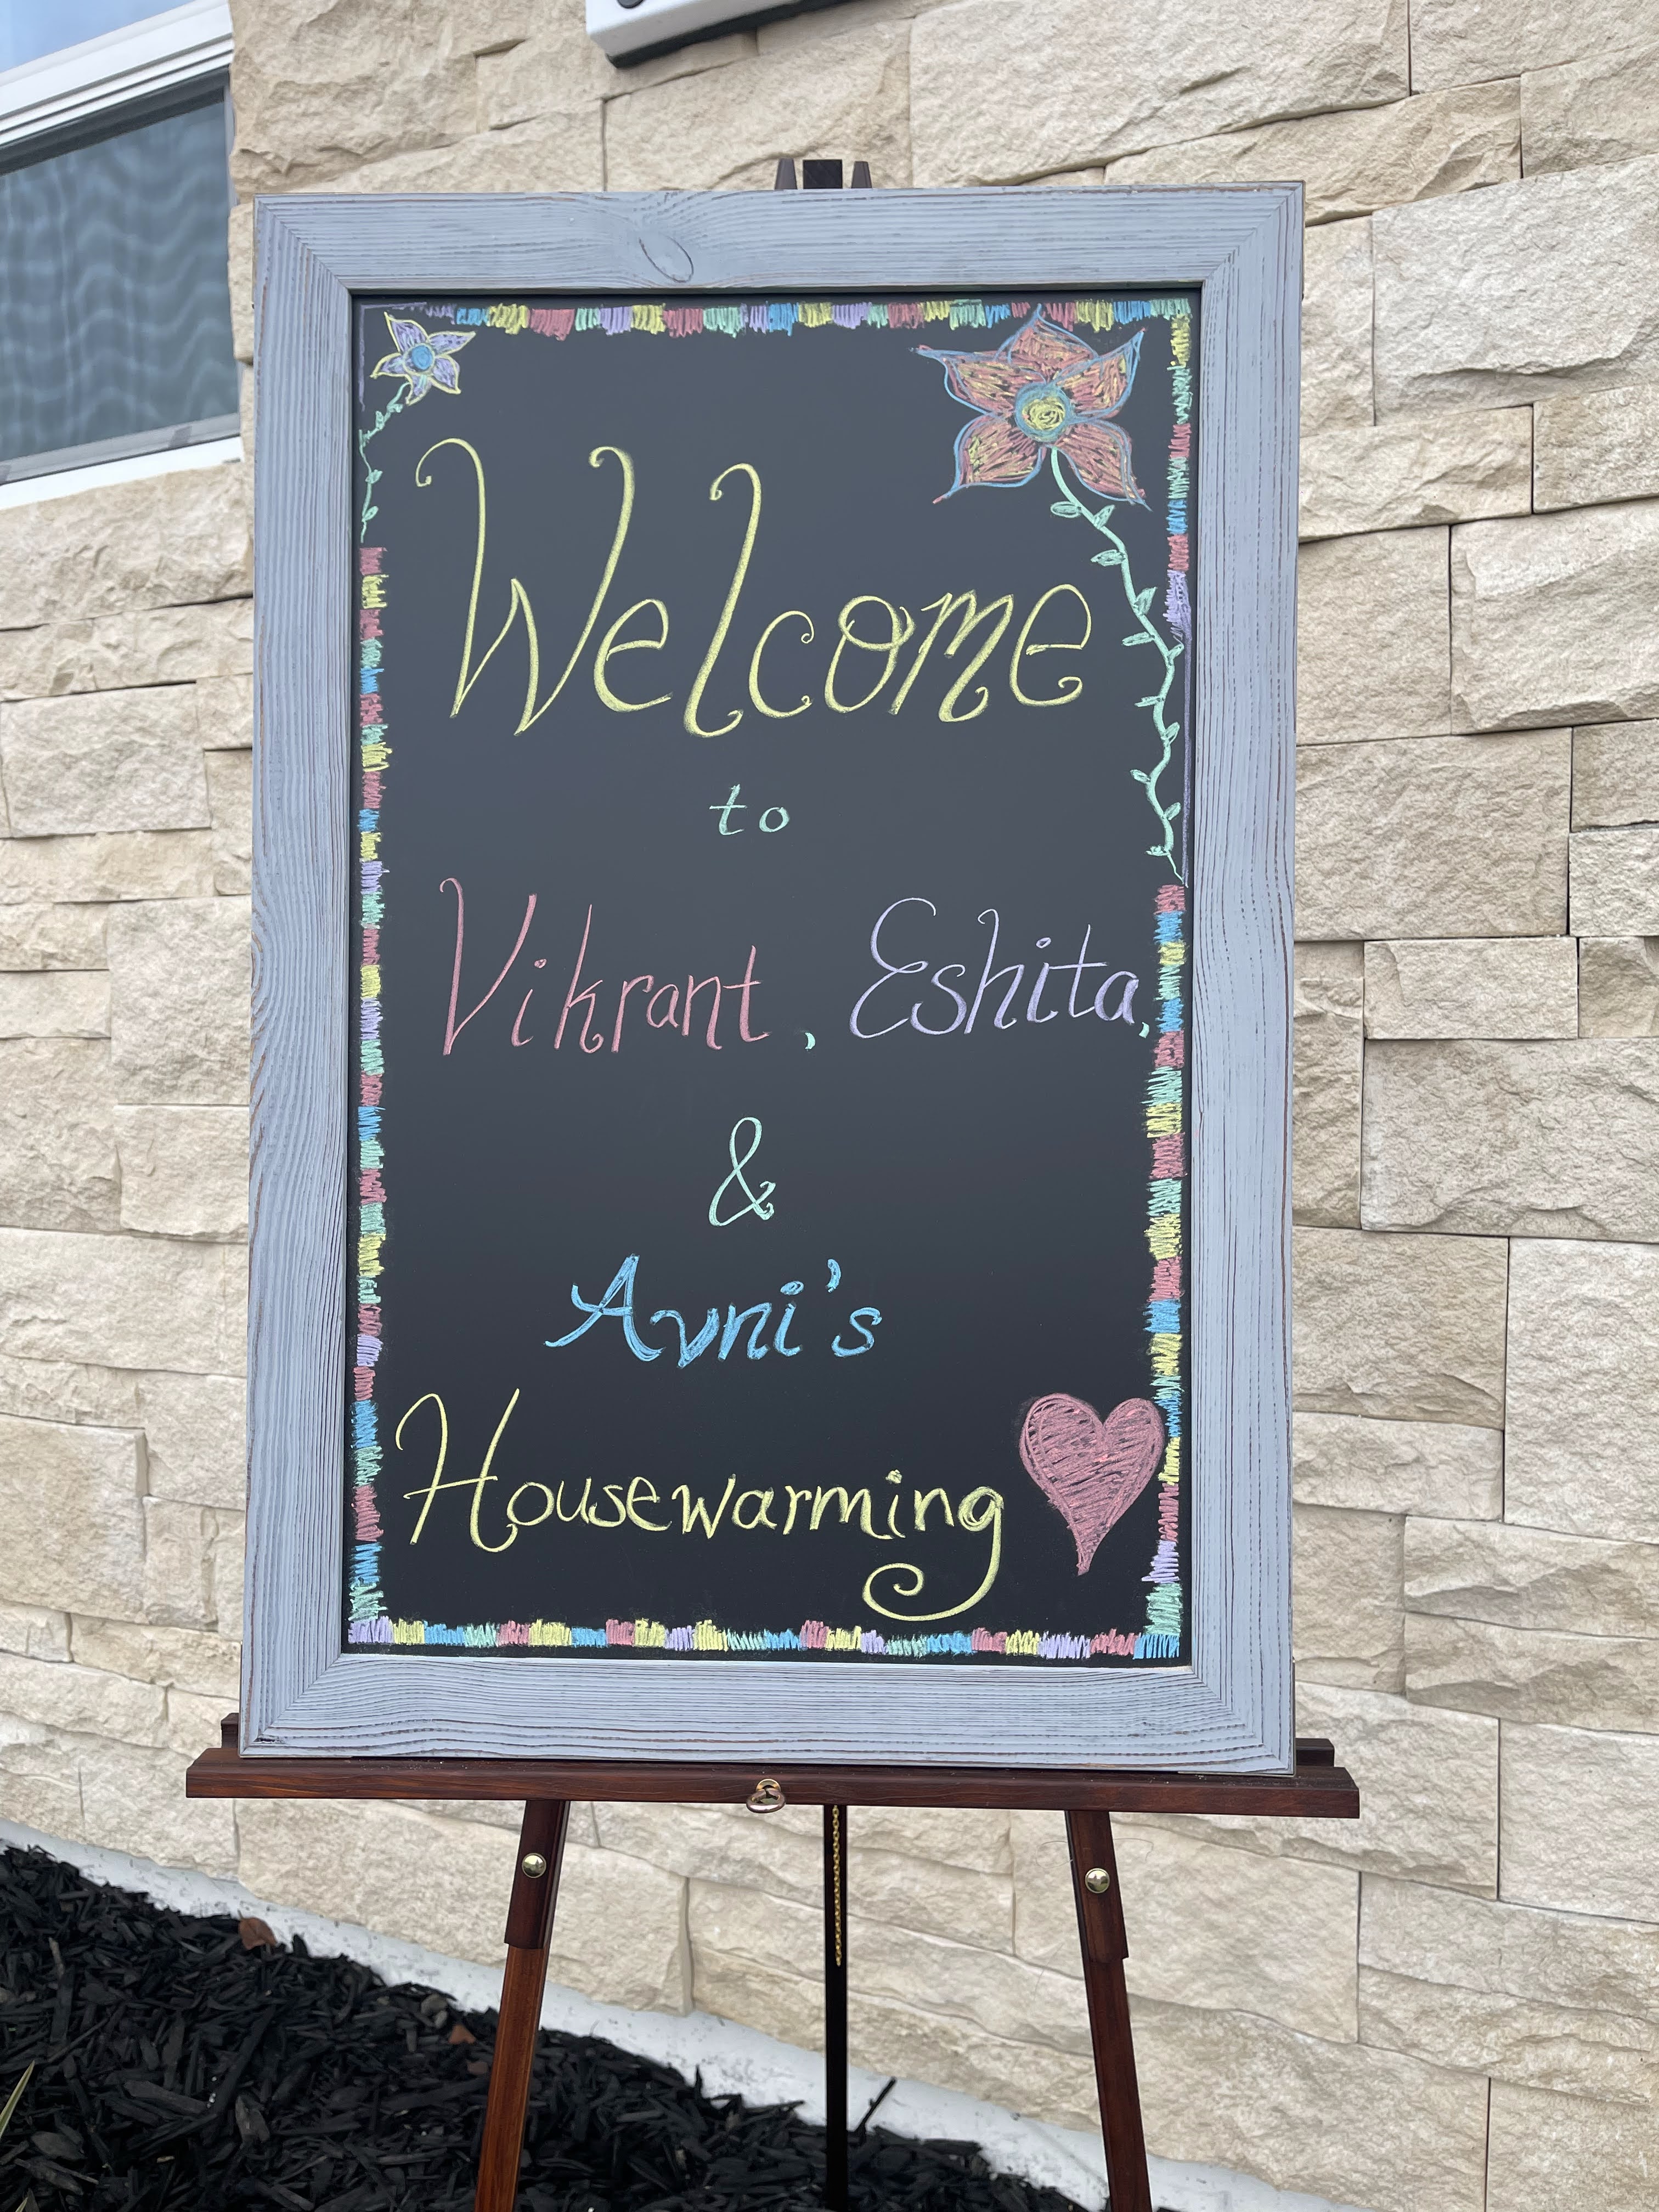 Welcome
to
Vikrant, Eshita,
&
Avni's
Housewarming